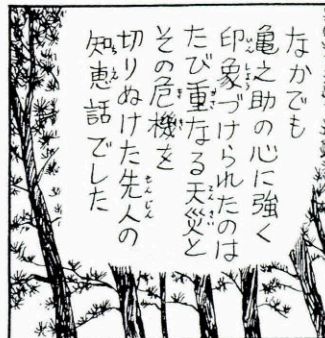 なかでも
亀之助の心に強く
印象づけられたのは
たび重なる天災と
その危機を
切りぬけた先人の
知恵話でした